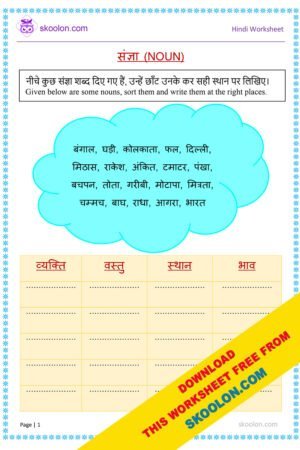 skoolon.com
Hindi Worksheet
संज्ञा (NOUN)
नीचे कुछ संज्ञा शब्द दिए गए हैं, उन्हें छाँट उनके कर सही स्थान पर लिखिए।
Given below are some nouns, sort them and write them at the right places.
बंगाल, घड़ी, कोलकाता, फल, दिल्ली,
मिठास, राकेश, अंकित, टमाटर, पंखा,
बचपन, तोता, गरीबी, मोटापा, मित्रता,
चम्मच, बाघ, राधा, आगरा, भारत
व्यक्ति वस्तु स्थान भाव
DOWNLOAD
THIS WORKSHEET FREE FROM
SKOOLON.COM
Page | 1
skoolon.com